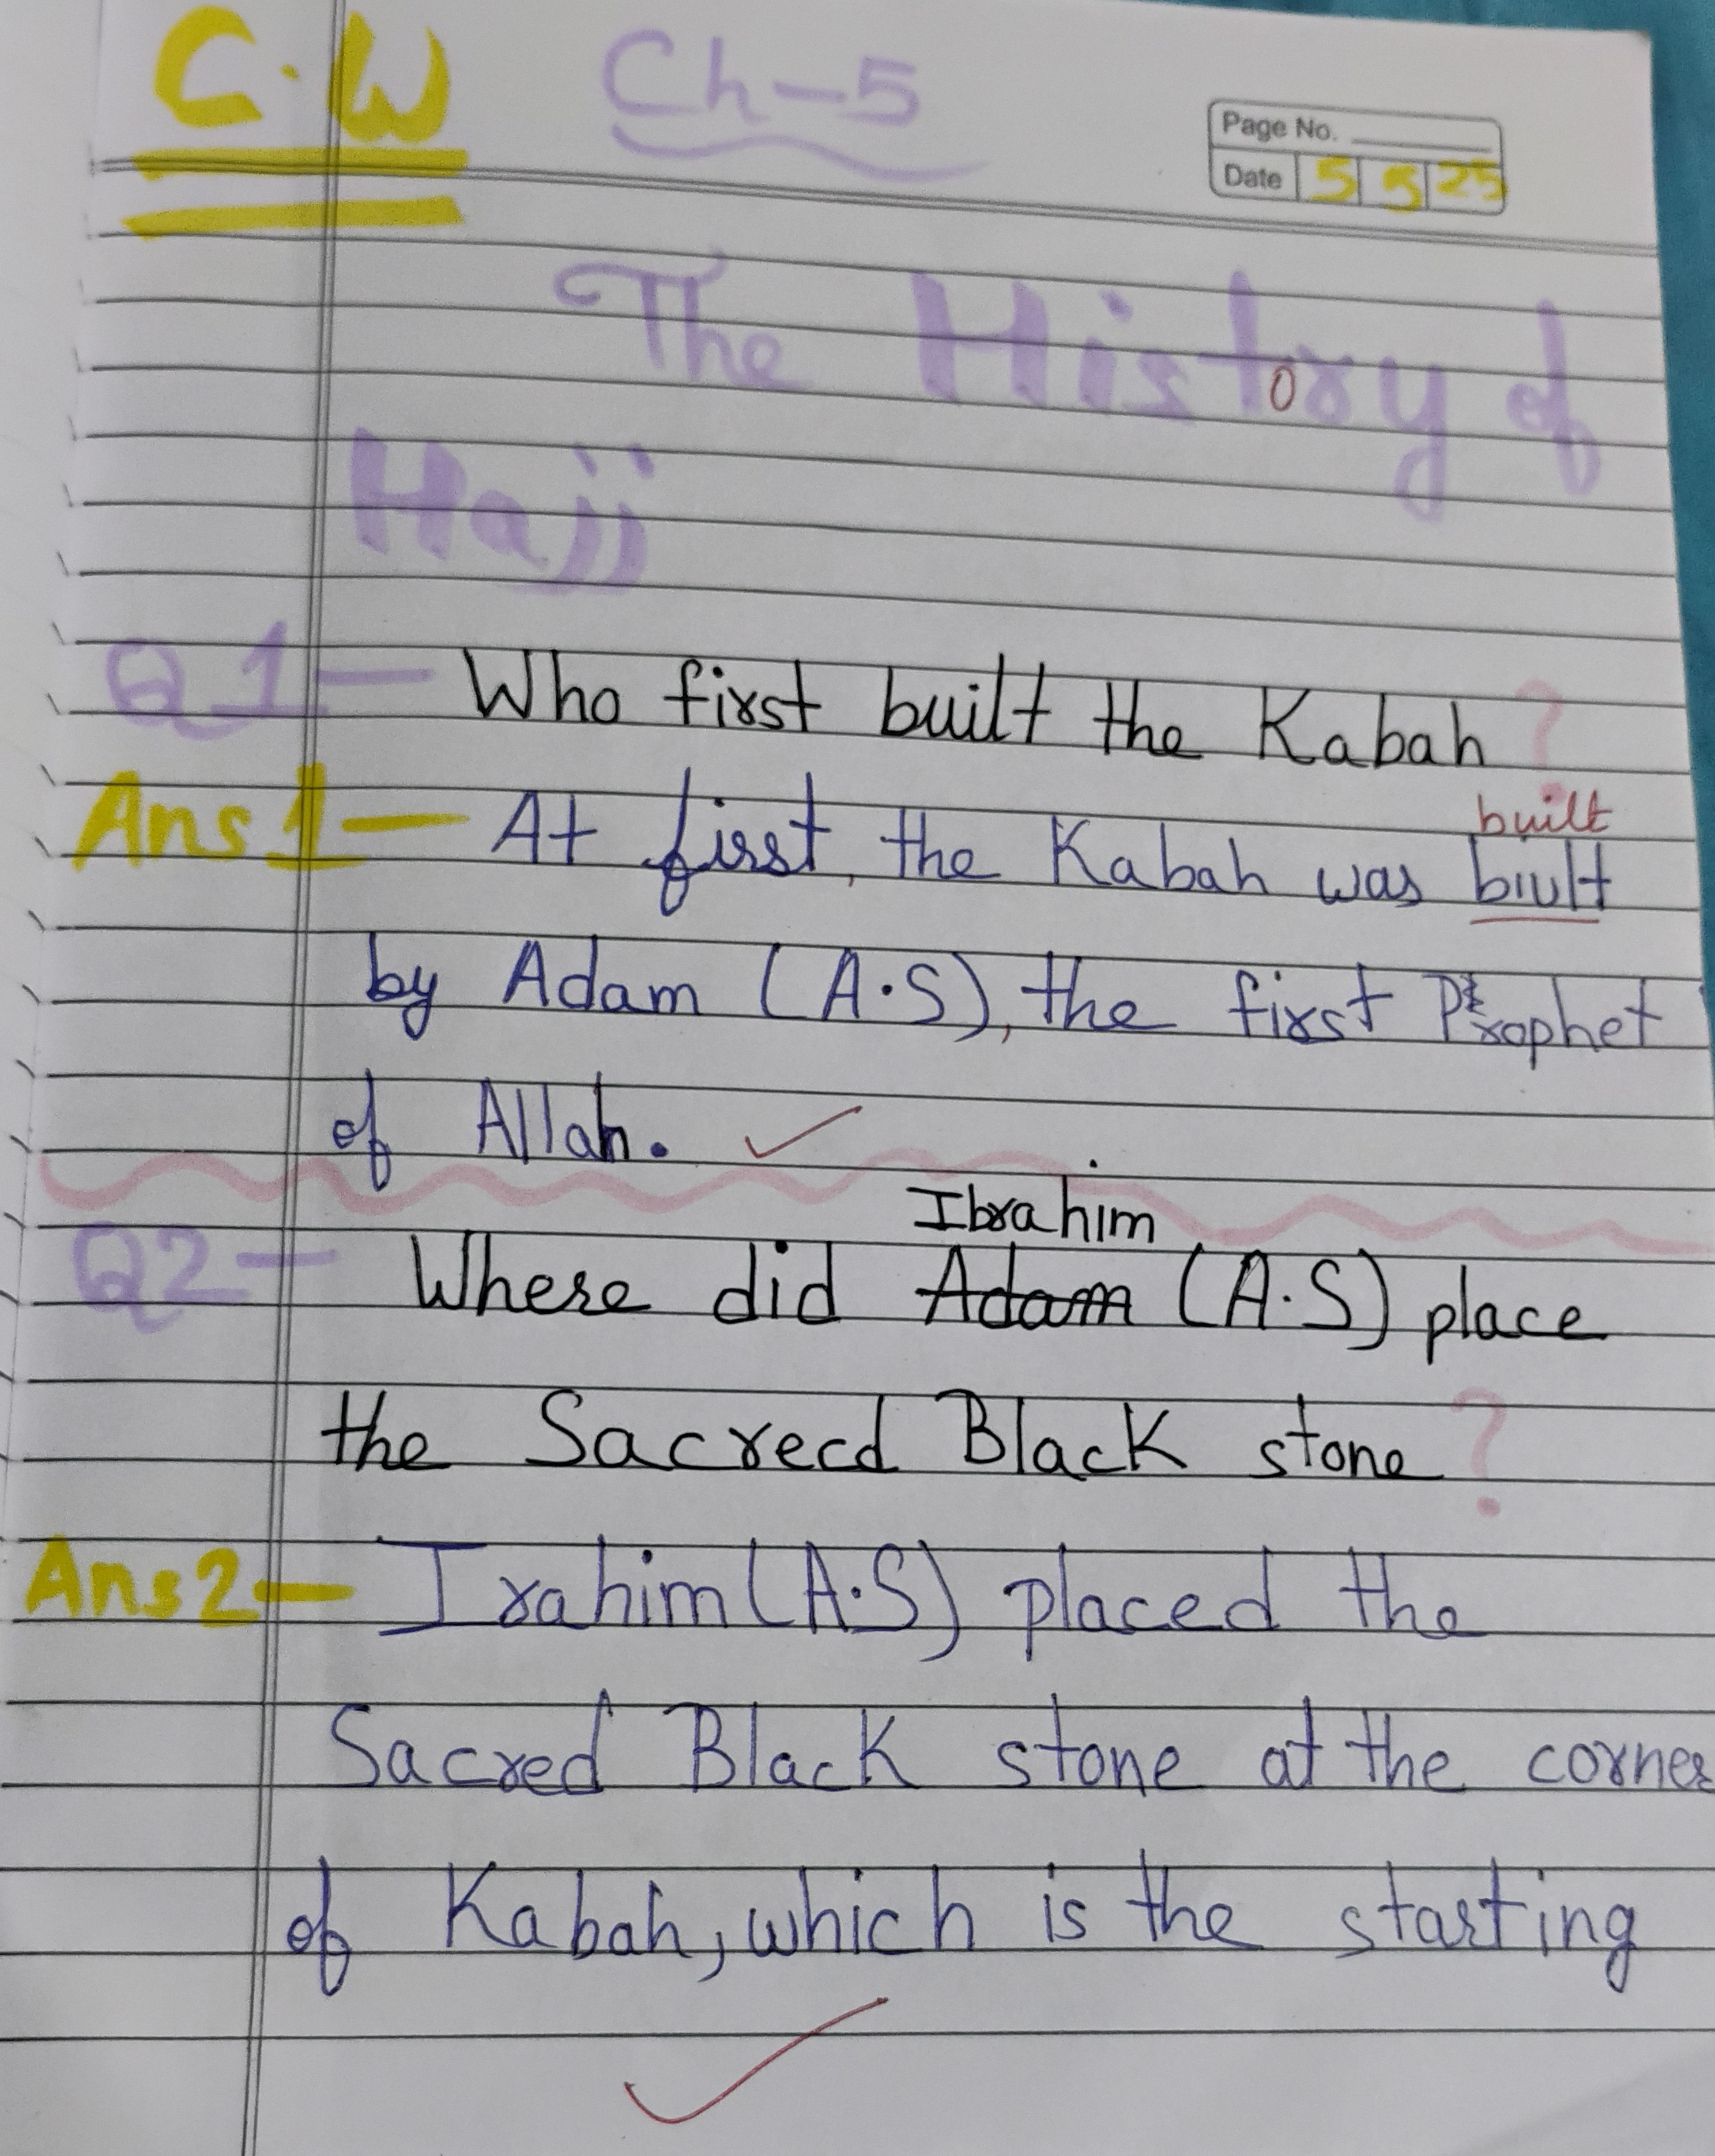 C.W Ch-5
Page No.
Date 5 5 25
The History of
Hajj
Q1- Who first built the Kabah?
built
Ans1- At first, the Kabah was biult
by Adam (A.S), the first Prophet
of Allah.
Ibrahim
Q2- Where did Adam (A.S) place
the Sacrecd Black stone?
Ans2- Irahim (A.S) placed the
Sacred Black stone at the corner
of Kabah, which is the starting